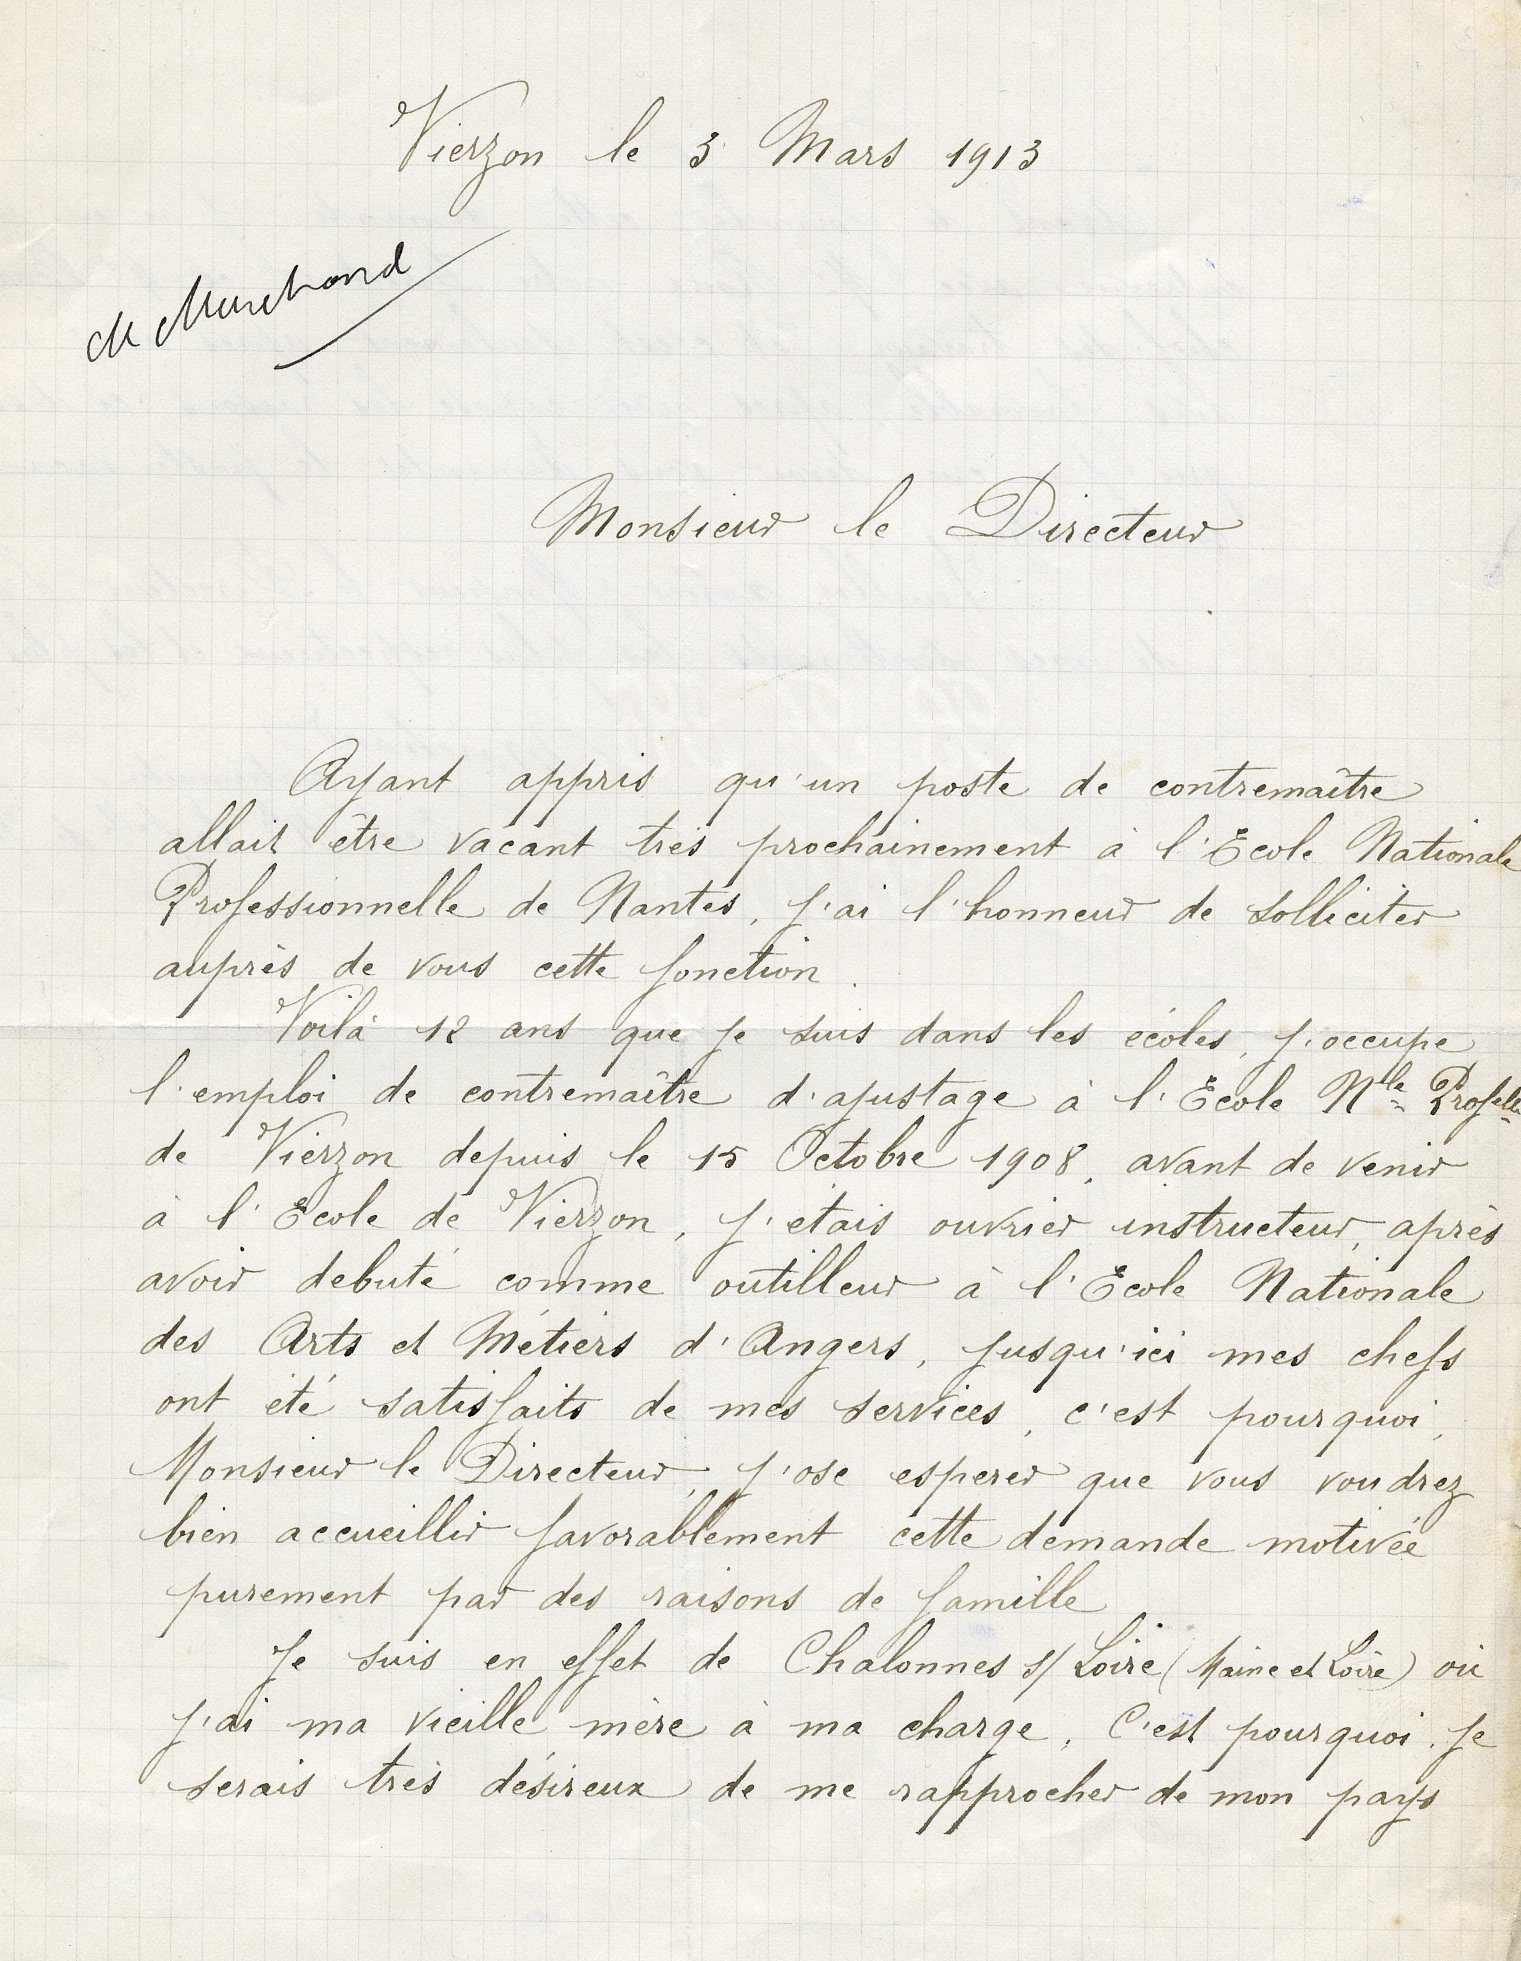 Vierzon le 3 Mars 1913
M Marchand
Monsieur le Directeur
Ayant appris qu'un poste de contremaître
allait être vacant très prochainement à l'Ecole Nationale
Professionnelle de Nantes, j'ai l'honneur de solliciter
auprès de vous cette fonction.
Voilà 12 ans que je suis dans les écoles, j'occupe
l'emploi de contremaître d'ajustage à l'Ecole Nle Profelle
de Vierzon depuis le 15 Octobre 1908, avant de venir
à l'Ecole de Vierzon, j'étais ouvrier instructeur, après
avoir debuté comme outilleur à l'Ecole Nationale
des Arts et Métiers d'Angers, jusqu'ici mes chefs
ont été satisfaits de mes services, c'est pourquoi,
Monsieur le Directeur, j'ose esperer que vous voudrez
bien accueillir favorablement cette demande motivée
purement par des raisons de famille
Je suis en effet de Chalonnes s/ Loire (Maine et Loire) où
j'ai ma vieille mère à ma charge. C'est pourquoi je
serais très désireux de me rapprocher de mon pays